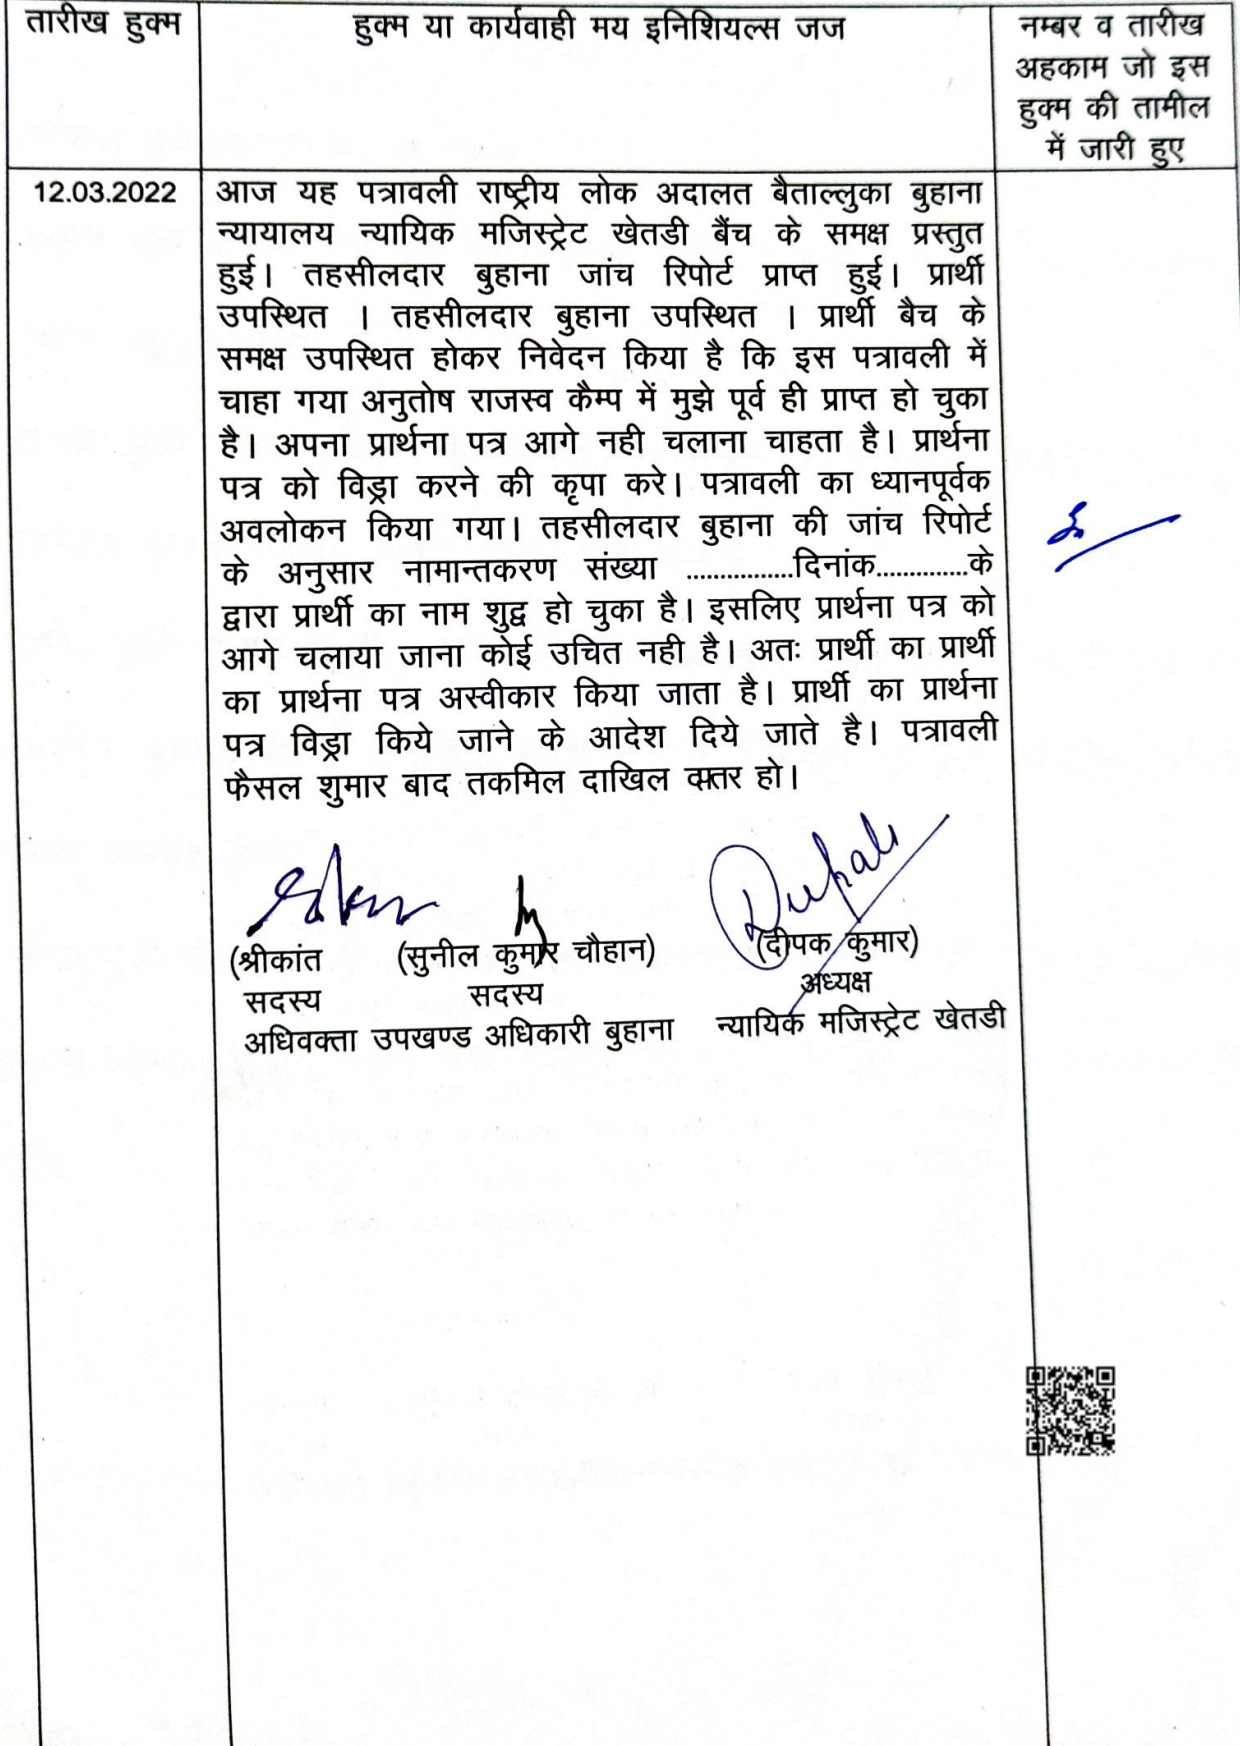 तारीख हुक्म
हुक्म या कार्यवाही मय इनिशियल्स जज
नम्बर व तारीख
अहकाम जो इस
हुक्म की तामील
में जारी हुए
12.03.2022
आज यह पत्रावली राष्ट्रीय लोक अदालत बैताल्लुका बुहाना
न्यायालय न्यायिक मजिस्ट्रेट खेतडी बैंच के समक्ष प्रस्तुत
हुई। तहसीलदार बुहाना जांच रिपोर्ट प्राप्त हुई। प्रार्थी
उपस्थित । तहसीलदार बुहाना उपस्थित । प्रार्थी बैच के
समक्ष उपस्थित होकर निवेदन किया है कि इस पत्रावली में
चाहा गया अनुतोष राजस्व कैम्प में मुझे पूर्व ही प्राप्त हो चुका
है। अपना प्रार्थना पत्र आगे नही चलाना चाहता है। प्रार्थना
पत्र को विड्रा करने की कृपा करे। पत्रावली का ध्यानपूर्वक
अवलोकन किया गया। तहसीलदार बुहाना की जांच रिपोर्ट
के अनुसार नामान्तकरण संख्या ................दिनांक.............के
द्वारा प्रार्थी का नाम शुद्व हो चुका है। इसलिए प्रार्थना पत्र को
आगे चलाया जाना कोई उचित नही है। अतः प्रार्थी का प्रार्थी
का प्रार्थना पत्र अस्वीकार किया जाता है। प्रार्थी का प्रार्थना
पत्र विड्रा किये जाने के आदेश दिये जाते है। पत्रावली
फैसल शुमार बाद तकमिल दाखिल दफ्तर हो।
(श्रीकांत (सुनील कुमार चौहान) (दीपक कुमार)
सदस्य सदस्य अध्यक्ष
अधिवक्ता उपखण्ड अधिकारी बुहाना न्यायिक मजिस्ट्रेट खेतडी